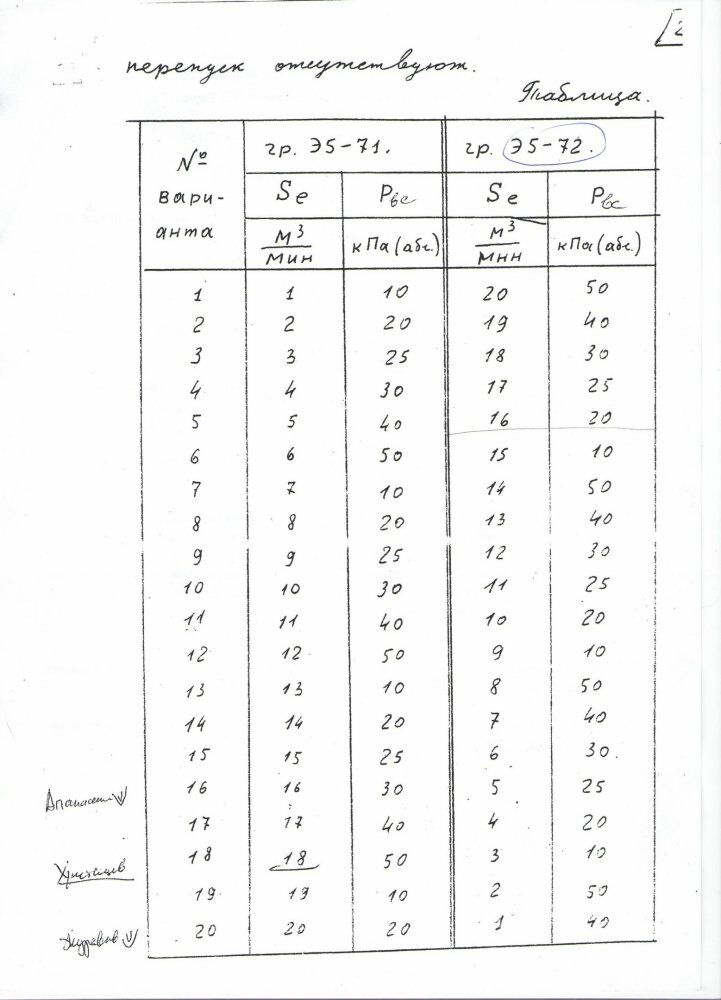 [2
перепуск отсутствуют.
Таблица.
№ вари-анта гр. Э5-71. гр. Э5-72.
Se Pвс Se Pвс
м³/мин кПа (абс.) м³/мин кПа (абс.)
1 1 10 20 50
2 2 20 19 40
3 3 25 18 30
4 4 30 17 25
5 5 40 16 20
6 6 50 15 10
7 7 10 14 50
8 8 20 13 40
9 9 25 12 30
10 10 30 11 25
11 11 40 10 20
12 12 50 9 10
13 13 10 8 50
14 14 20 7 40
15 15 25 6 30
16 16 30 5 25
17 17 40 4 20
18 18 50 3 10
19 19 10 2 50
20 20 20 1 40